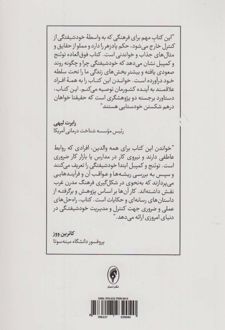 "این کتاب مهم برای فرهنگی که به واسطهٔ خودشیفتگی از
کنترل خارج می‌شود، حکم پادزهر را دارد و مملو از حقایق و
مثال‌های جذاب و خواندنی است. کتاب فوق‌العاده‌ توئنج
و کمپبل نشان می‌دهد که خودشیفتگی چرا و چگونه روند
صعودی یافته و بیشتر بخش‌های زندگی ما را تحت سلطه
خود درآورده است. خواندن این کتاب را به همهٔ افراد
علاقه‌مند به آینده کشورمان توصیه می‌کنم. این کتاب،
دستاورد برجسته دو پژوهشگری است که حقیقتا خواهان
درهم شکستن خودشیفتگی هستند."
رابرت لیهی
رئیس مؤسسه شناخت درمانی آمریکا
"خواندن این کتاب برای همه والدین، افرادی که روابط
عاطفی دارند و نیروی کار در مدارس یا بازار کار ضروری
است. توئنج و کمپبل ابتدا خودشیفتگی را تعریف می‌کنند
و سپس به بررسی ریشه‌ها و عواقب آن و فرآیندهایی
می‌پردازند که به‌نحوی در شکل‌گیری فرهنگ مدرن غرب
نقش داشته‌اند. کار آن‌ها بر اساس پژوهش و برگرفته از
داستان‌های رسانه‌ای و حکایات است. کتاب، راه‌حل‌های
عملی و ضروری جهت کنترل و مدیریت خودشیفتگی در
دنیای امروزی ارائه می‌دهد."
کاترین ووز
پروفسور دانشگاه مینه‌سوتا